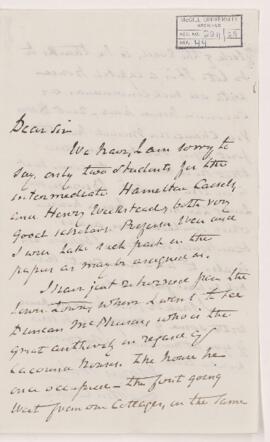 McGILL UNIVERSITY
ARCHIVES
ACC. NO.
REF. 44
Dear Sir
We have, I am sorry to
say, only two students for the
intermediate Hamilton Cassels
and Henry Weekstead, both very
good scholars. Professor and
I will take such part in the
papers as may be assigned us.
I have just returned from the
Lower Town, where I went to see
Duncan McPherson, who is the
great authority in regard of
Cacouna houses. The house he
once occupied – the first going
West from our Cottages, in the same